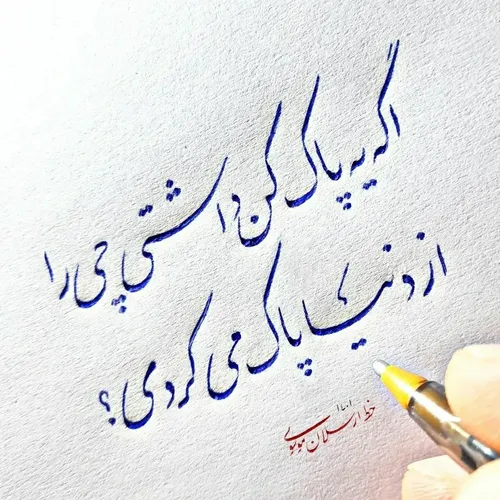 اگه یه پاک کن داشتی چی را
از دنیا پاک می کردی؟
خط ارسلان موسوی